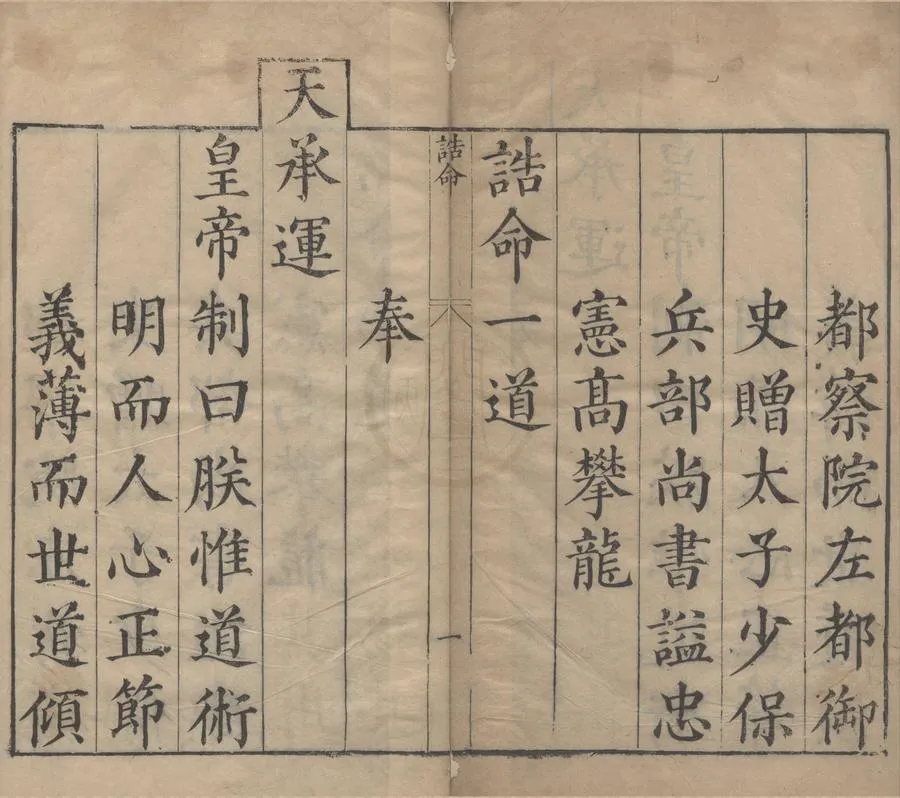 都察院左都御
史贈太子少保
兵部尚書謚忠
憲髙攀龍
誥命一道
誥命
一
奉
天承運
皇帝制曰朕惟道術
明而人心正節
義薄而世道傾